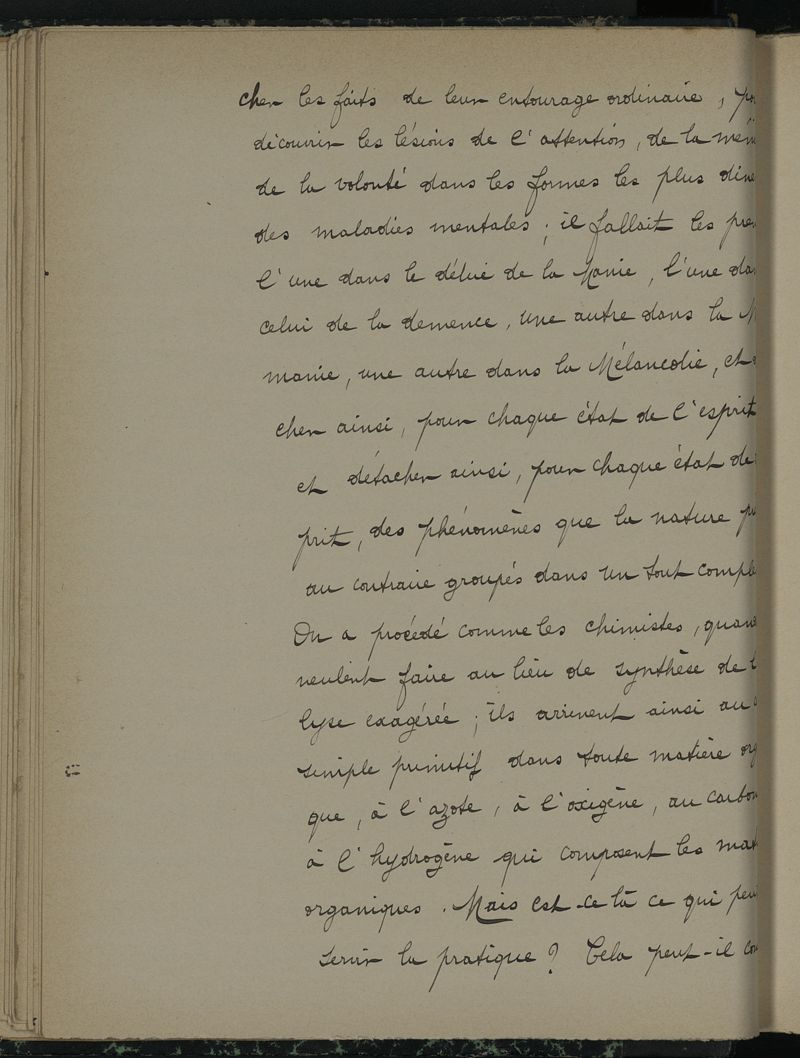 cher les faits de leur entourage ordinaire, po
découvrir les lésions de l'attention, de la mém
de la volonté dans les formes les plus dive
des maladies mentales ; il fallait les pren
l'une dans le délire de la Manie, l'une dan
celui de la demence, une autre dans la M
manie, une autre dans la Mélancolie, et d
cher ainsi, pour chaque état de l'esprit
et détacher ainsi, pour chaque état de
prit, des phénomènes que la nature p
au contraire groupés dans un tout comple
On a procédé comme les chimistes, quan
veulent faire au lieu de synthèse de l
lyse exagérée ; ils arrivent ainsi au
simple primitif dans toute matière org
que, à l'azote, à l'oxigène, au carbon
à l'hydrogène qui composent les mat
organiques. Mais est-ce là ce qui peu
servir la pratique ? Cela peut-il con